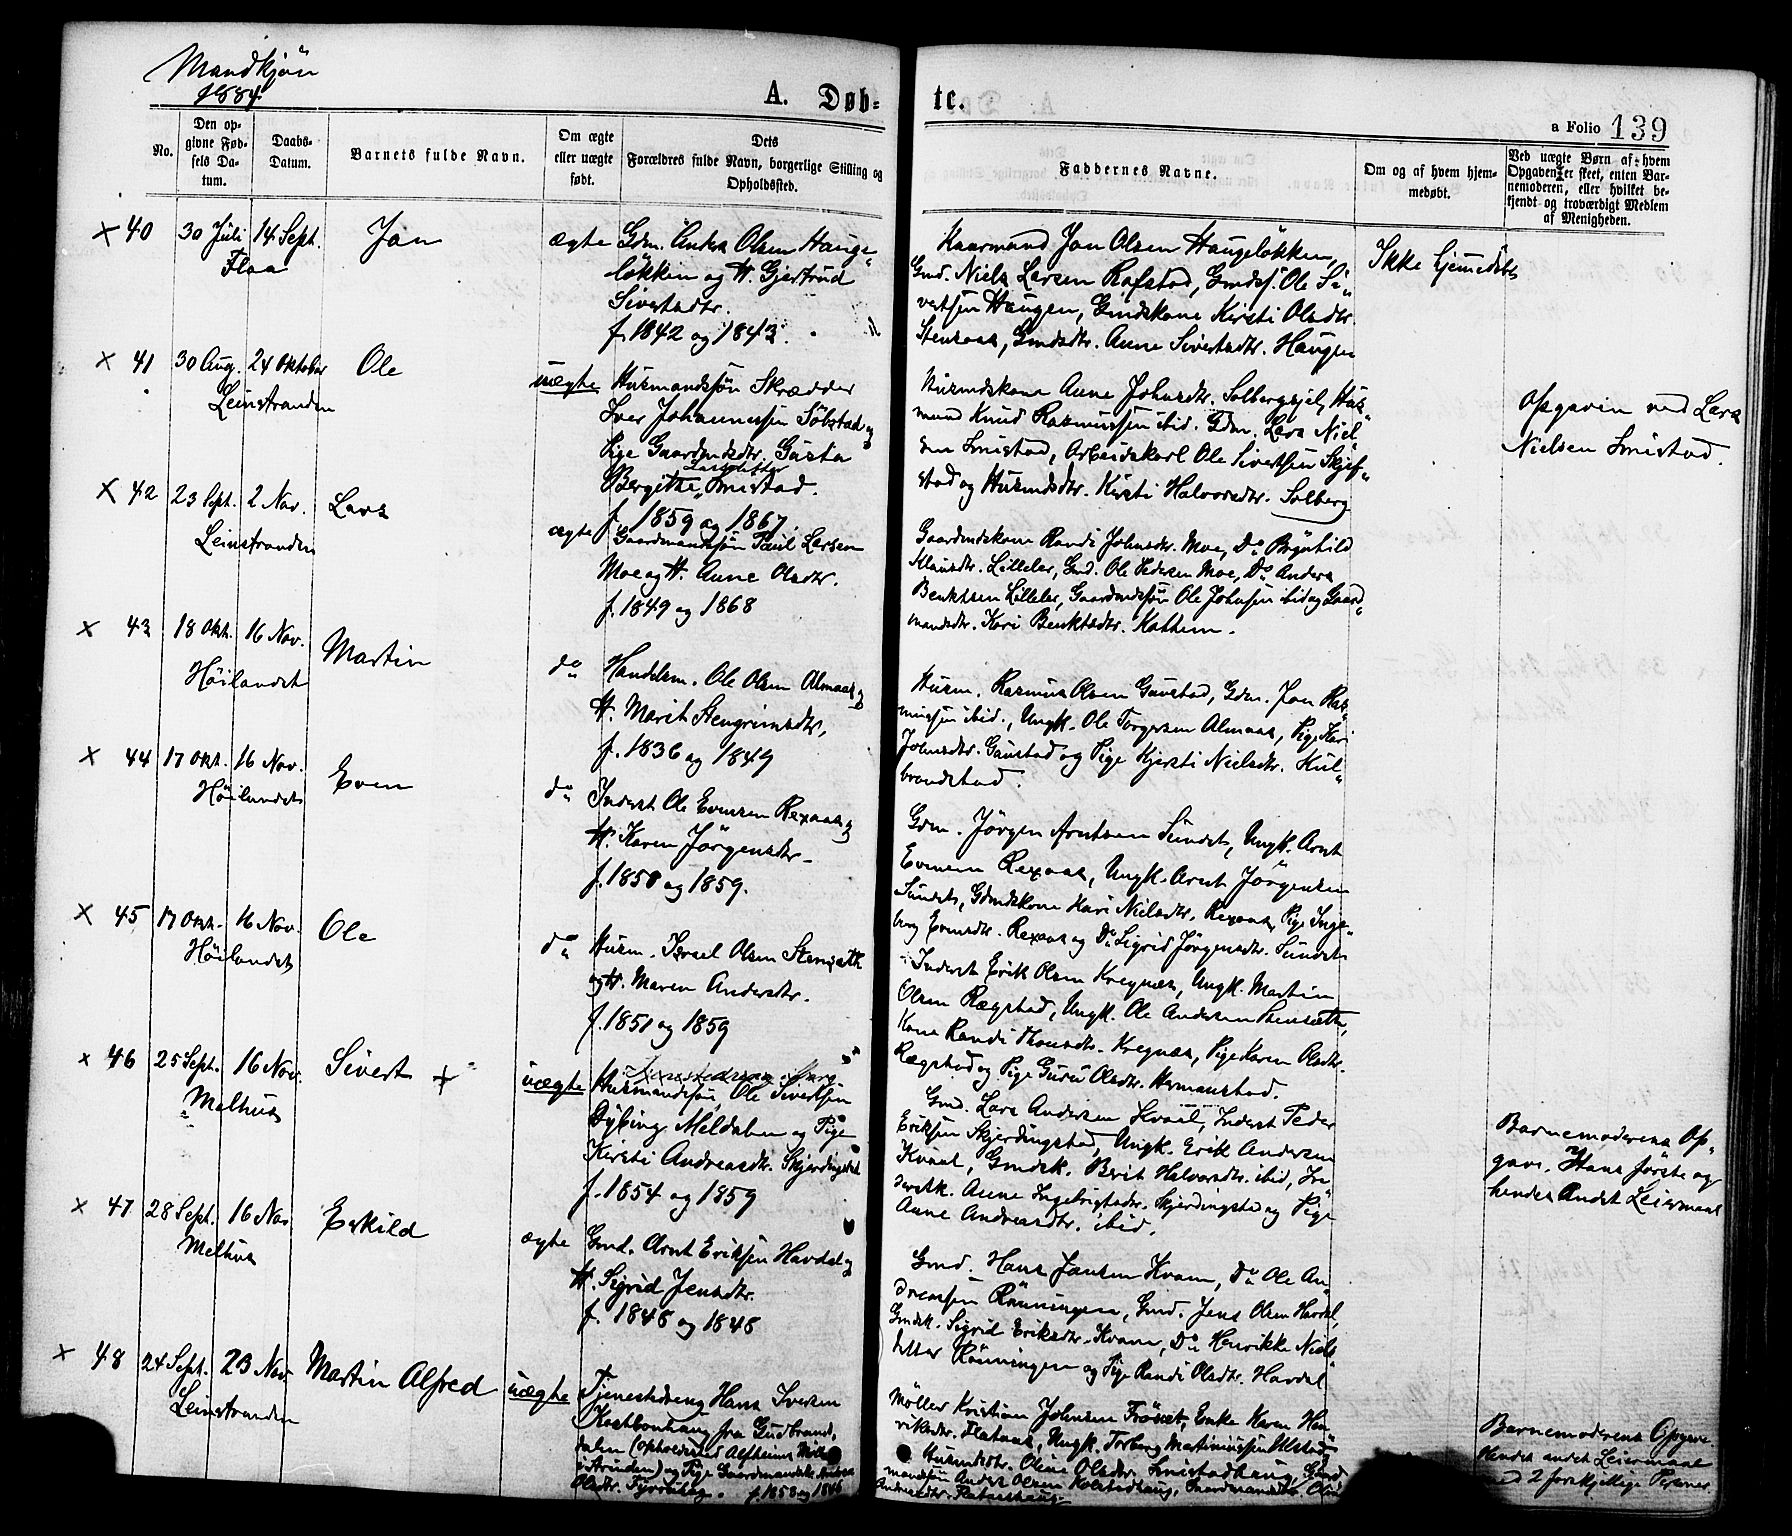 Mandkjön
1884.
A. Døb-
te.
a Folio 139
No.
Den op-
givne Fød-
sels Da-
tum.
Daabs-
Datum.
Barnets fulde Navn.
Om ægte
eller uægte
født.
Dets
Forældres fulde Navn, borgerlige Stilling og
Opholdssted.
Faddernes Navne.
Om og af hvem hjem-
medøbt.
Ved uægte Børn af hvem
Opgaven er skeet, enten Bar-
nemoderen, eller hvilket be-
kjendt og troværdigt Medlem
af Menigheden.
× 40 30 Juli 14 Sept. Jon ægte
Flaa
Gdm. Anders Olsen Hauge-
løkken og H. Gjertrud
Sivertsdtr.
f. 1842 og 1843.
Kaarmand Jon Olsen Haugeløkken,
Gmd. Niels Larsen Rofstad, Gmdss. Ole Si-
vertsen Haugen, Gmdskone Kirsti Olsdtr.
Stensaas, Gmdsdtr. Anne Sivertsdtr. Haugen
Ikke hjemedøbt
× 41 30 Aug. 24 Oktober Ole uægte
Leinstranden
Husmandssøn Skrædder
Iver Johannessen Söbstad og
Pige Gaardmdsdtr. Gusta
Bergithe Larsdatter Smistad.
f. 1859 og 1867.
Husmdskone Anne Johnsdtr. Solbergseje, Hus-
mand Knud Rasmussen ibid. Gdm. Lars Niel-
sen Smistad, Arbeidskarl Ole Sivertsen Skjef-
stad og Husmdsdtr. Kirsti Halvorsdtr. Solberg
Opgaven ved Lars
Nielsen Smistad.
× 42 23 Sept. 2 Nov. Lars ægte
Leinstranden
Gaardmandssøn Paul Larsen
Moe og H. Anne Olsdtr.
f. 1849 og 1868
Gaardmdskone Randi Johnsdtr. Moe, Do Brynhild
Klausdtr. Lilleler, Gmd. Ole Pedersen Moe, Do Anders
Benktsen Lilleler, Gaardmdssøn Ole Johnsen ibid og Gaard-
mandsdtr. Kari Benktsdtr. Kathem.
× 43 18 Okt. 16 Nov. Martin do
Höilandet
Handelsm. Ole Olsen Almaas og
H. Marit Stengrimsdtr,
f. 1836 og 1849
Husm. Rasmus Olsen Gaustad, Gdm. Jon Ras-
mussen ibid., Ungk. Ole Torgersen Almaas, Pige Kari
Johnsdtr. Gaustad og Pige Kjersti Nielsdtr. Kul-
brandstad.
× 44 17 Okt. 16 Nov. Even do
Höilandet
Inderst Ole Evensen Rexaas og
H. Karen Jörgensdtr.
f. 1850 og 1859.
Gdm. Jörgen Arntsen Sundet, Ungk. Arnt
Evensen Rexaas, Ungk. Arnt Jörgensen
Sundet, Gdmdskone Mari Nielsdtr. Rexaas, Pige Inge-
borg Evensdtr. Rexaas og Do Sigrid Jörgensdtr. Sundet
× 45 17 Okt. 16 Nov. Ole do
Höilandet
Husm. Israel Olsen Stensæth
og H. Maren Andersdtr.
f. 1851 og 1859
Inderst Erik Olsen Kregnæs, Ungk. Martin
Olsen Rægstad, Ungk. Ole Andersen Stensæth,
Kone Randi Thomsdtr. Kregnæs, Pige Karen Olsdtr.
Rægstad og Pige Guru Olsdtr. Hermanstad.
× 46 25 Sept. 16 Nov. Sivert + uægte
Melhus
Husmandssøn Ole Sivertsen
Dybing Meldalen og Pige
Kirsti Andreasdtr. Skjerdingstad
f. 1854 og 1859
Gmd. Lars Andersen Kvaal, Inderst Peder
Eriksen Skjerdingstad, Ungk. Erik Andersen
Kvaal, Gmdsk. Berit Halvorsdtr. ibid, In-
derstk. Anne Ingebrigtsdtr. Skjerdingstad og Pige
Anne Andreasdtr. ibid.
Barnemoderens Op-
gave. Hans förste og
hendes Andet Leiermaal
× 47 28 Sept. 16 Nov Eskild ægte
Melhus
Gmd. Arnt Eriksen Havdal og
H. Sigrid Jensdtr.
f. 1848 og 1848
Gmd. Hans Jansen Kvam, Do Ole An-
dreasen Rönningen, Gmd. Jens Olsen Havdal,
Gmdsk. Sigrid Eriksdtr. Kvam, Do Henrikke Niels-
datter Rönningen og Pige Randi Olsdtr. Havdal
× 48 24 Sept. 23 Nov Martin Alfred uægte
Leinstranden
Tjenestedreng Hans Iversen
Kostbonhaug fra Gudbrands
dalen (opholdssted Alfheim
Strinden) og Pige Gaardmandsdtr.
Olsdtr. f. 1858 og 1846
Möller Kristian Johnsen Fröset, Enke Karen Hen-
riksdtr. Flataas, Ungk. Torberg Martinussen Ulstad
Husmdsdtr. Oline Olsdtr. Smistadhaug, Gmd
mandssøn Anders Olsen Kolstadhaug, Gaardmandsdtr. Oline
Andreasdtr. Flataashaug.
Barnemoderens Opgave
Hendes andet Leiermaal
med 2 forskjellige Personer.